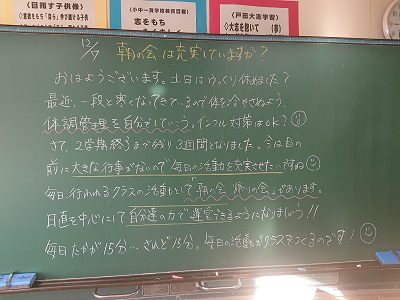 <目指す子供像>
小中一貫学校教育目標
志をもち
<戸田大志学習>
◇大志を抱いて (事)
12/7 朝の会は充実していますか?
おはようございます。土日はゆっくり休めました?
最近、一段と寒くなってきているので体を冷やさぬよう、
体調管理を自分でしていこう。インフル対策はOK?
さて、2学期終了まで残り3週間となりました。今は目の
前に大きな行事がないので毎日の活動を充実させたいですね
毎日行われるクラスの活動として「朝の会・帰りの会」があります。
日直を中心にして自分達の力で運営できるようになりましょう!!
毎日たかが15分…されど15分。毎日の活動がクラスをつくるのです!